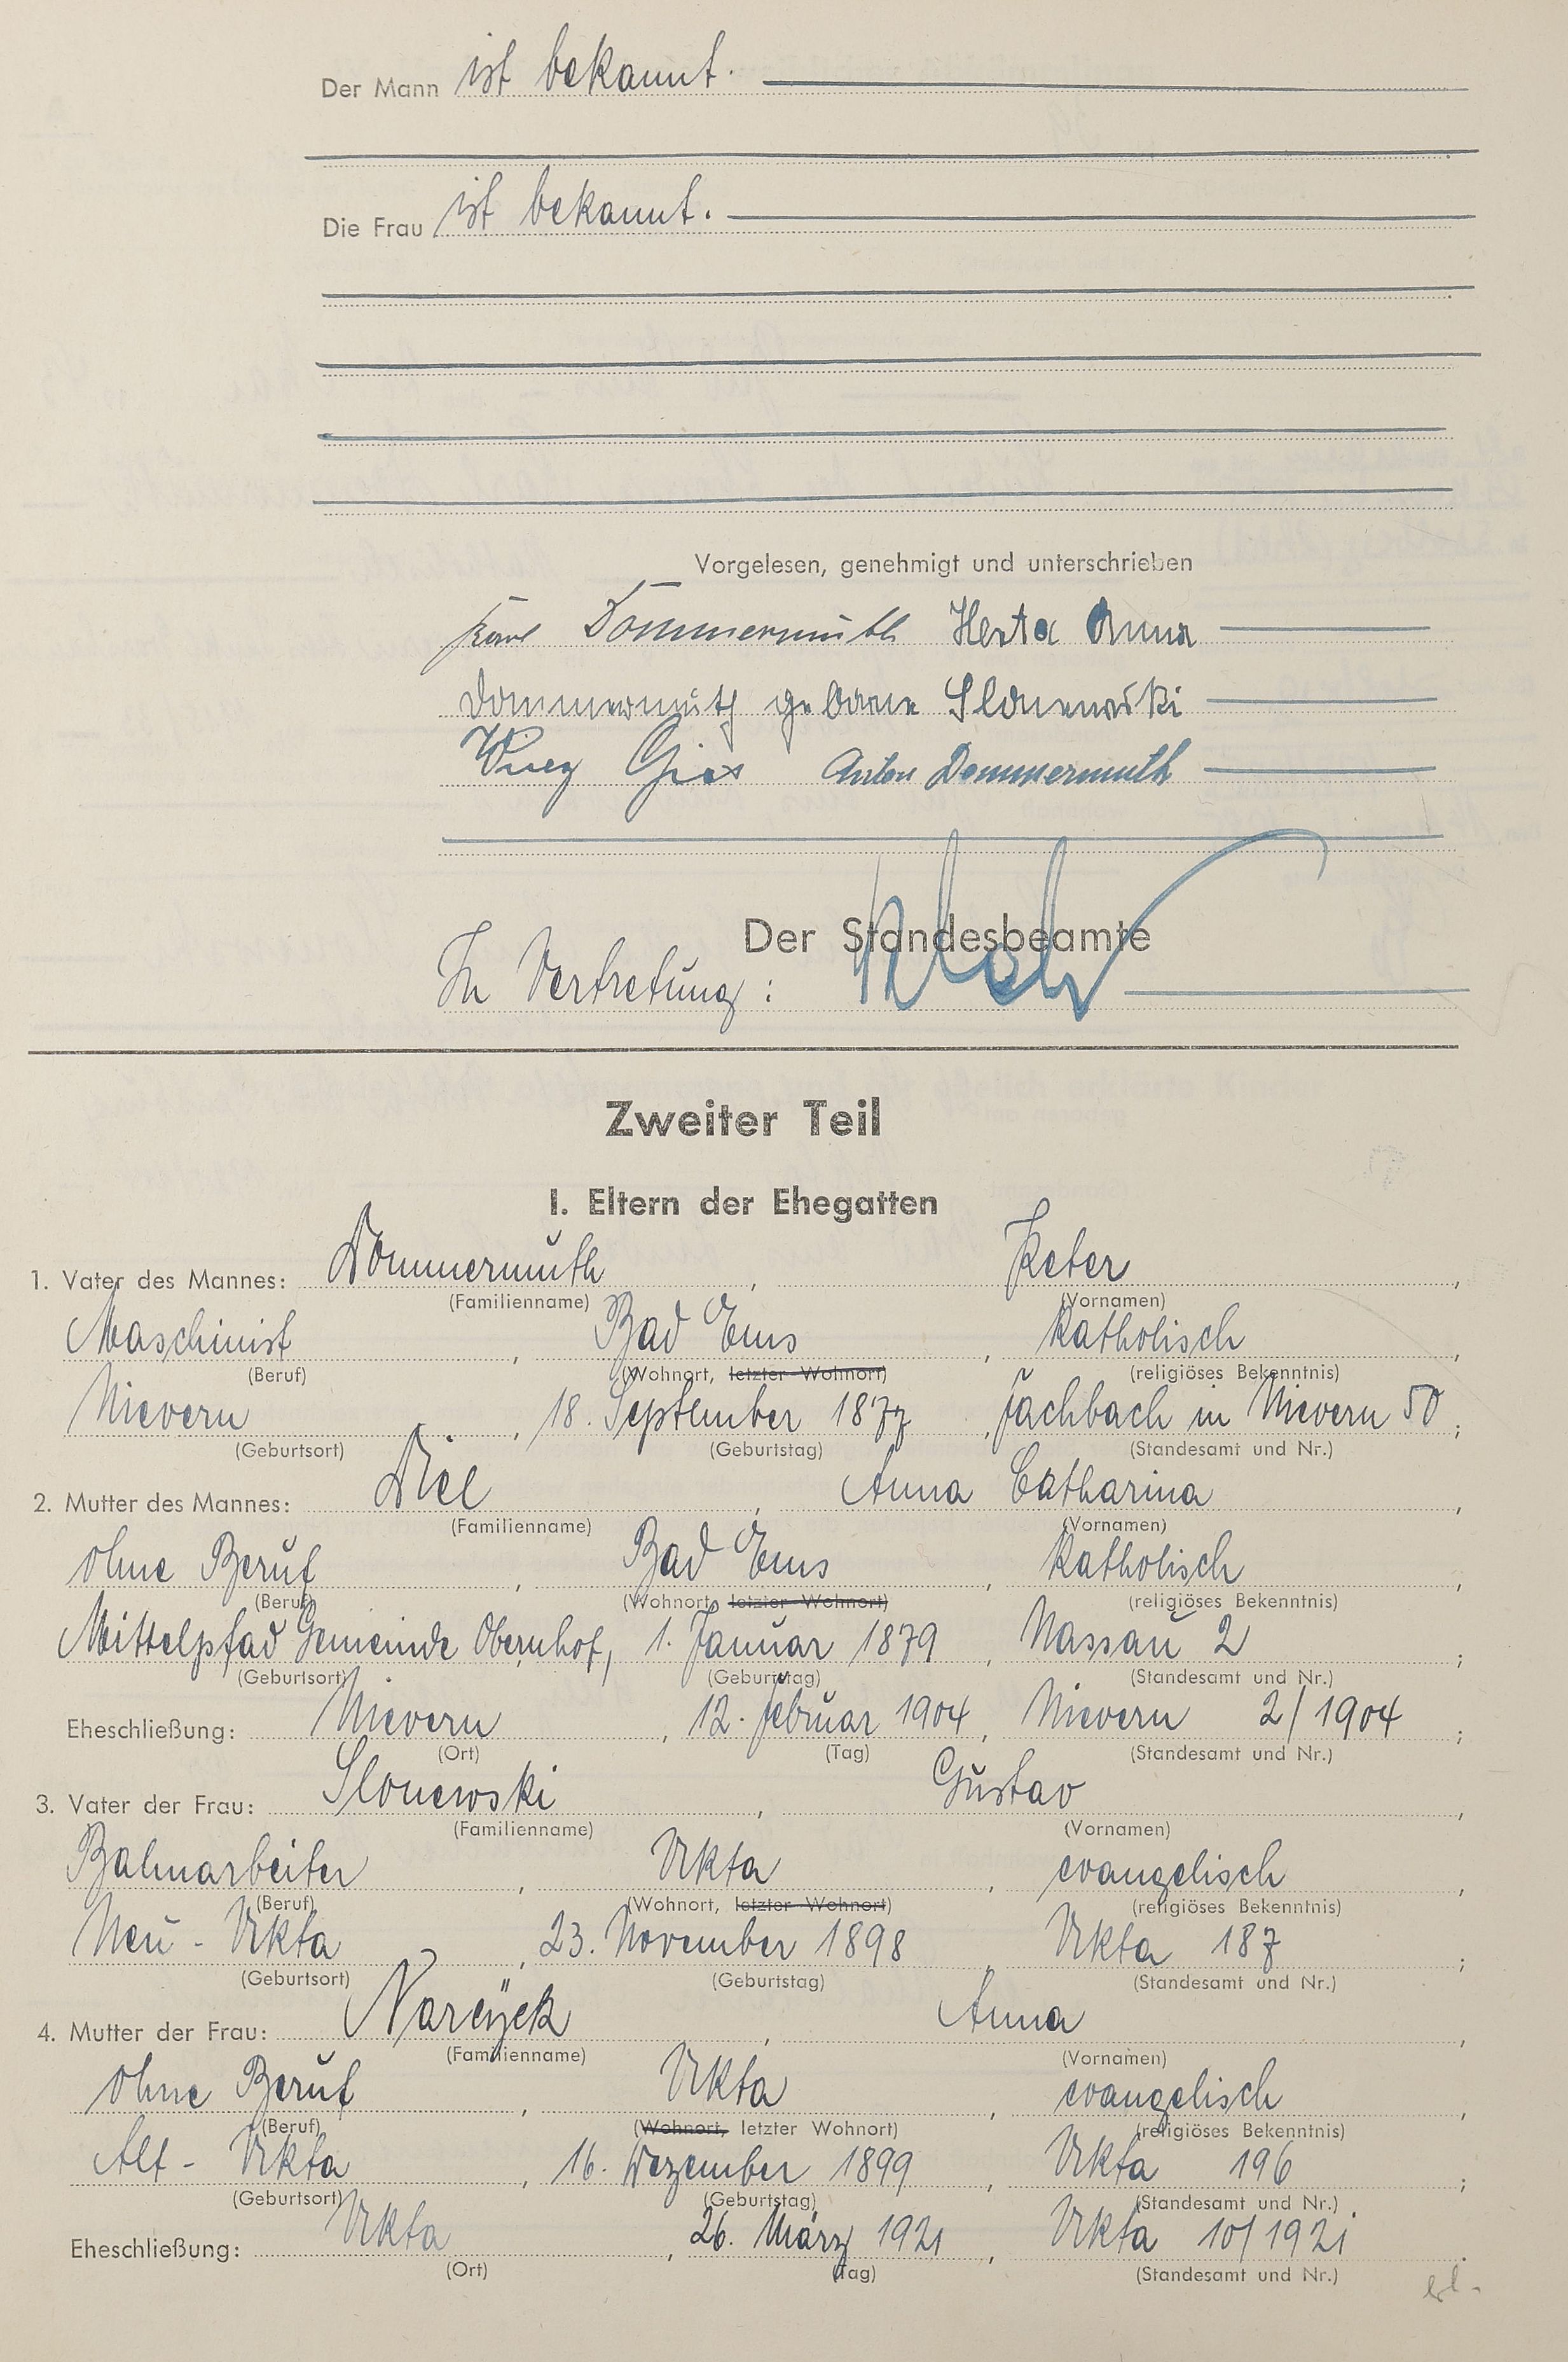 Der Mann ist bekannt.
Die Frau ist bekannt.
Vorgelesen, genehmigt und unterschrieben
Karl Dommermuth Herta Anna
Dommermuth geborne Slonewski
Gies Anton Dommermuth
Der Standesbeamte
In Vertretung:
Zweiter Teil
I. Eltern der Ehegatten
1. Vater des Mannes: Dommermuth, Peter,
(Familienname) (Vornamen)
Maschinist, Bad Ems, katholisch,
(Beruf) (Wohnort, letzter Wohnort) (religiöses Bekenntnis)
Nievern, 18. September 1877, Fachbach in Nievern 50;
(Geburtsort) (Geburtstag) (Standesamt und Nr.)
2. Mutter des Mannes: Diel, Anna Catharina,
(Familienname) (Vornamen)
ohne Beruf, Bad Ems, katholisch,
(Beruf) (Wohnort, letzter Wohnort) (religiöses Bekenntnis)
Mittelpfad Gemeinde Obernhof, 1. Januar 1879, Nassau 2;
(Geburtsort) (Geburtstag) (Standesamt und Nr.)
Eheschließung: Nievern, 12. Februar 1904, Nievern 2/1904;
(Ort) (Tag) (Standesamt und Nr.)
3. Vater der Frau: Slonewski, Gustav,
(Familienname) (Vornamen)
Bahnarbeiter, Ukta, evangelisch,
(Beruf) (Wohnort, letzter Wohnort) (religiöses Bekenntnis)
Neu-Ukta, 23. November 1898, Ukta 187;
(Geburtsort) (Geburtstag) (Standesamt und Nr.)
4. Mutter der Frau: Narcÿck, Anna,
(Familienname) (Vornamen)
ohne Beruf, Ukta, evangelisch,
(Beruf) (Wohnort, letzter Wohnort) (religiöses Bekenntnis)
Alt-Ukta, 16. Dezember 1899, Ukta 196;
(Geburtsort) (Geburtstag) (Standesamt und Nr.)
Eheschließung: Ukta, 26. März 1921, Ukta 10/1921.
(Ort) (Tag) (Standesamt und Nr.)